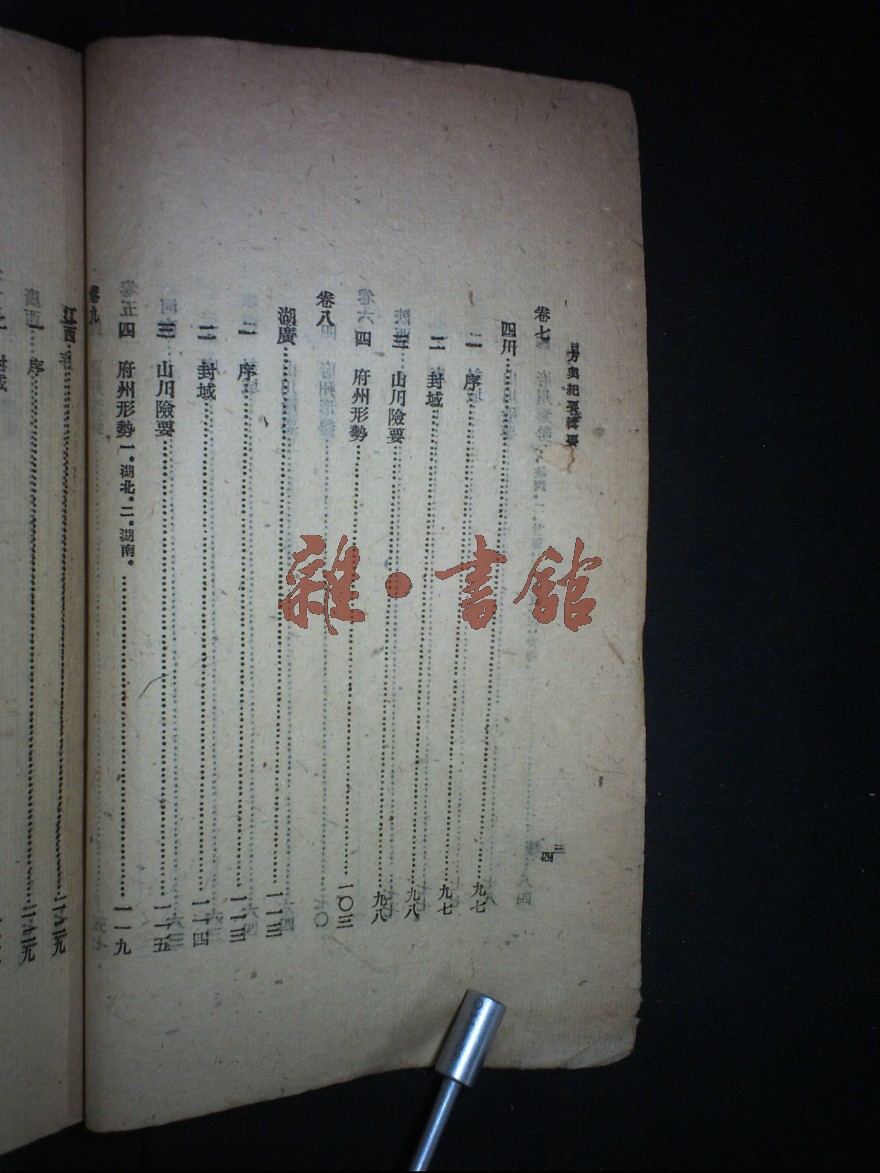 方輿紀要輯要
四
卷七
四川……九七
一 序……九七
二 封域……九八
三 山川險要……九八
四 府州形勢……一〇三
卷八
湖廣……一一三
一 序……一一三
二 封域……一一四
三 山川險要……一一五
四 府州形勢 一.湖北.二.湖南.……一一九
卷九
江西……一二九
一 序……一二九
雜·書館